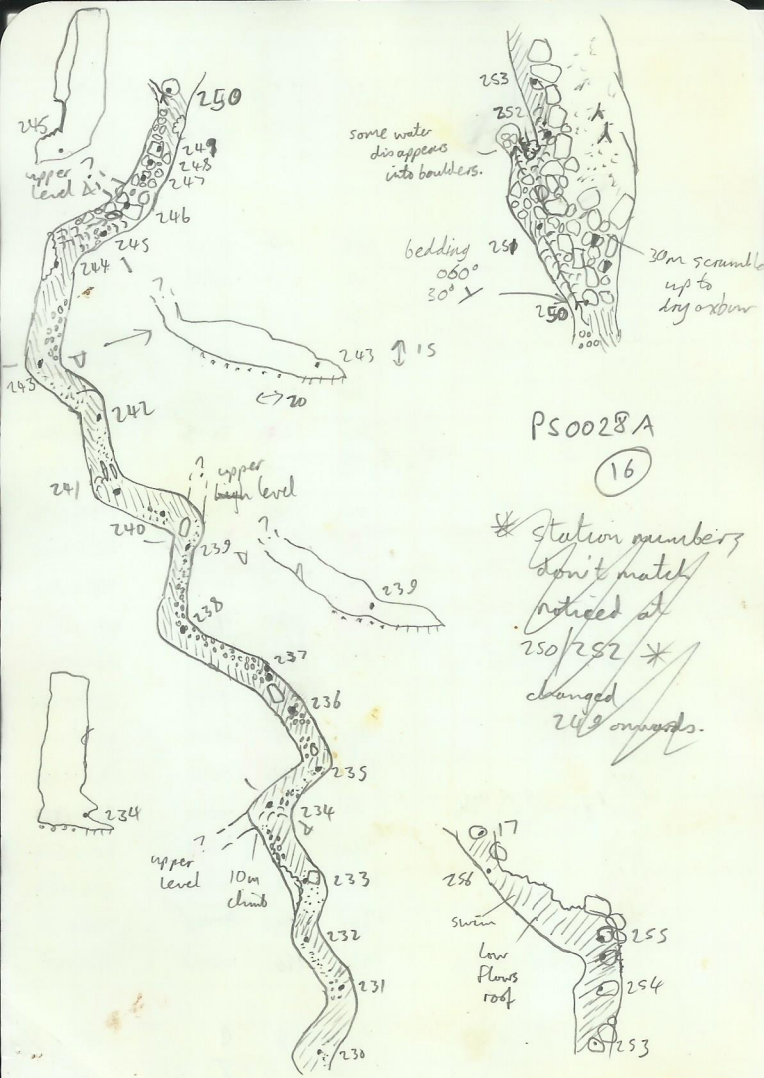 245
250
249
248
247
upper
level
?
246
245
244
?
243
15
20
243
242
241
240
?
upper
level
239
?
239
238
237
236
235
234
234
?
upper
level
10m
climb
233
232
231
230
253
252
some water
disappears
into boulders.
251
bedding
060°
30°
250
30m scramble
up to
dry oxbow
PS0028A
16
* station numbers
don't match
noticed at
250/252 *
changed
249 onwards.
17
256
swim
low
flows
roof
255
254
253